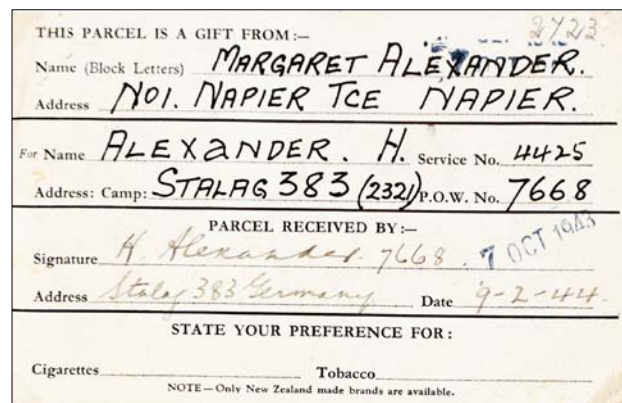 2723
THIS PARCEL IS A GIFT FROM :—
Name (Block Letters) MARGARET ALEXANDER.
Address NO1. NAPIER TCE NAPIER.
For Name ALEXANDER. H. Service No. 4425
Address: Camp: STALAG 383 (2321) P.O.W. No. 7668
PARCEL RECEIVED BY :—
Signature H. Alexander. 7668.
7 OCT 1943
Address Stalag 383 Germany Date 9-2-44.
STATE YOUR PREFERENCE FOR :
Cigarettes Tobacco
NOTE—Only New Zealand made brands are available.